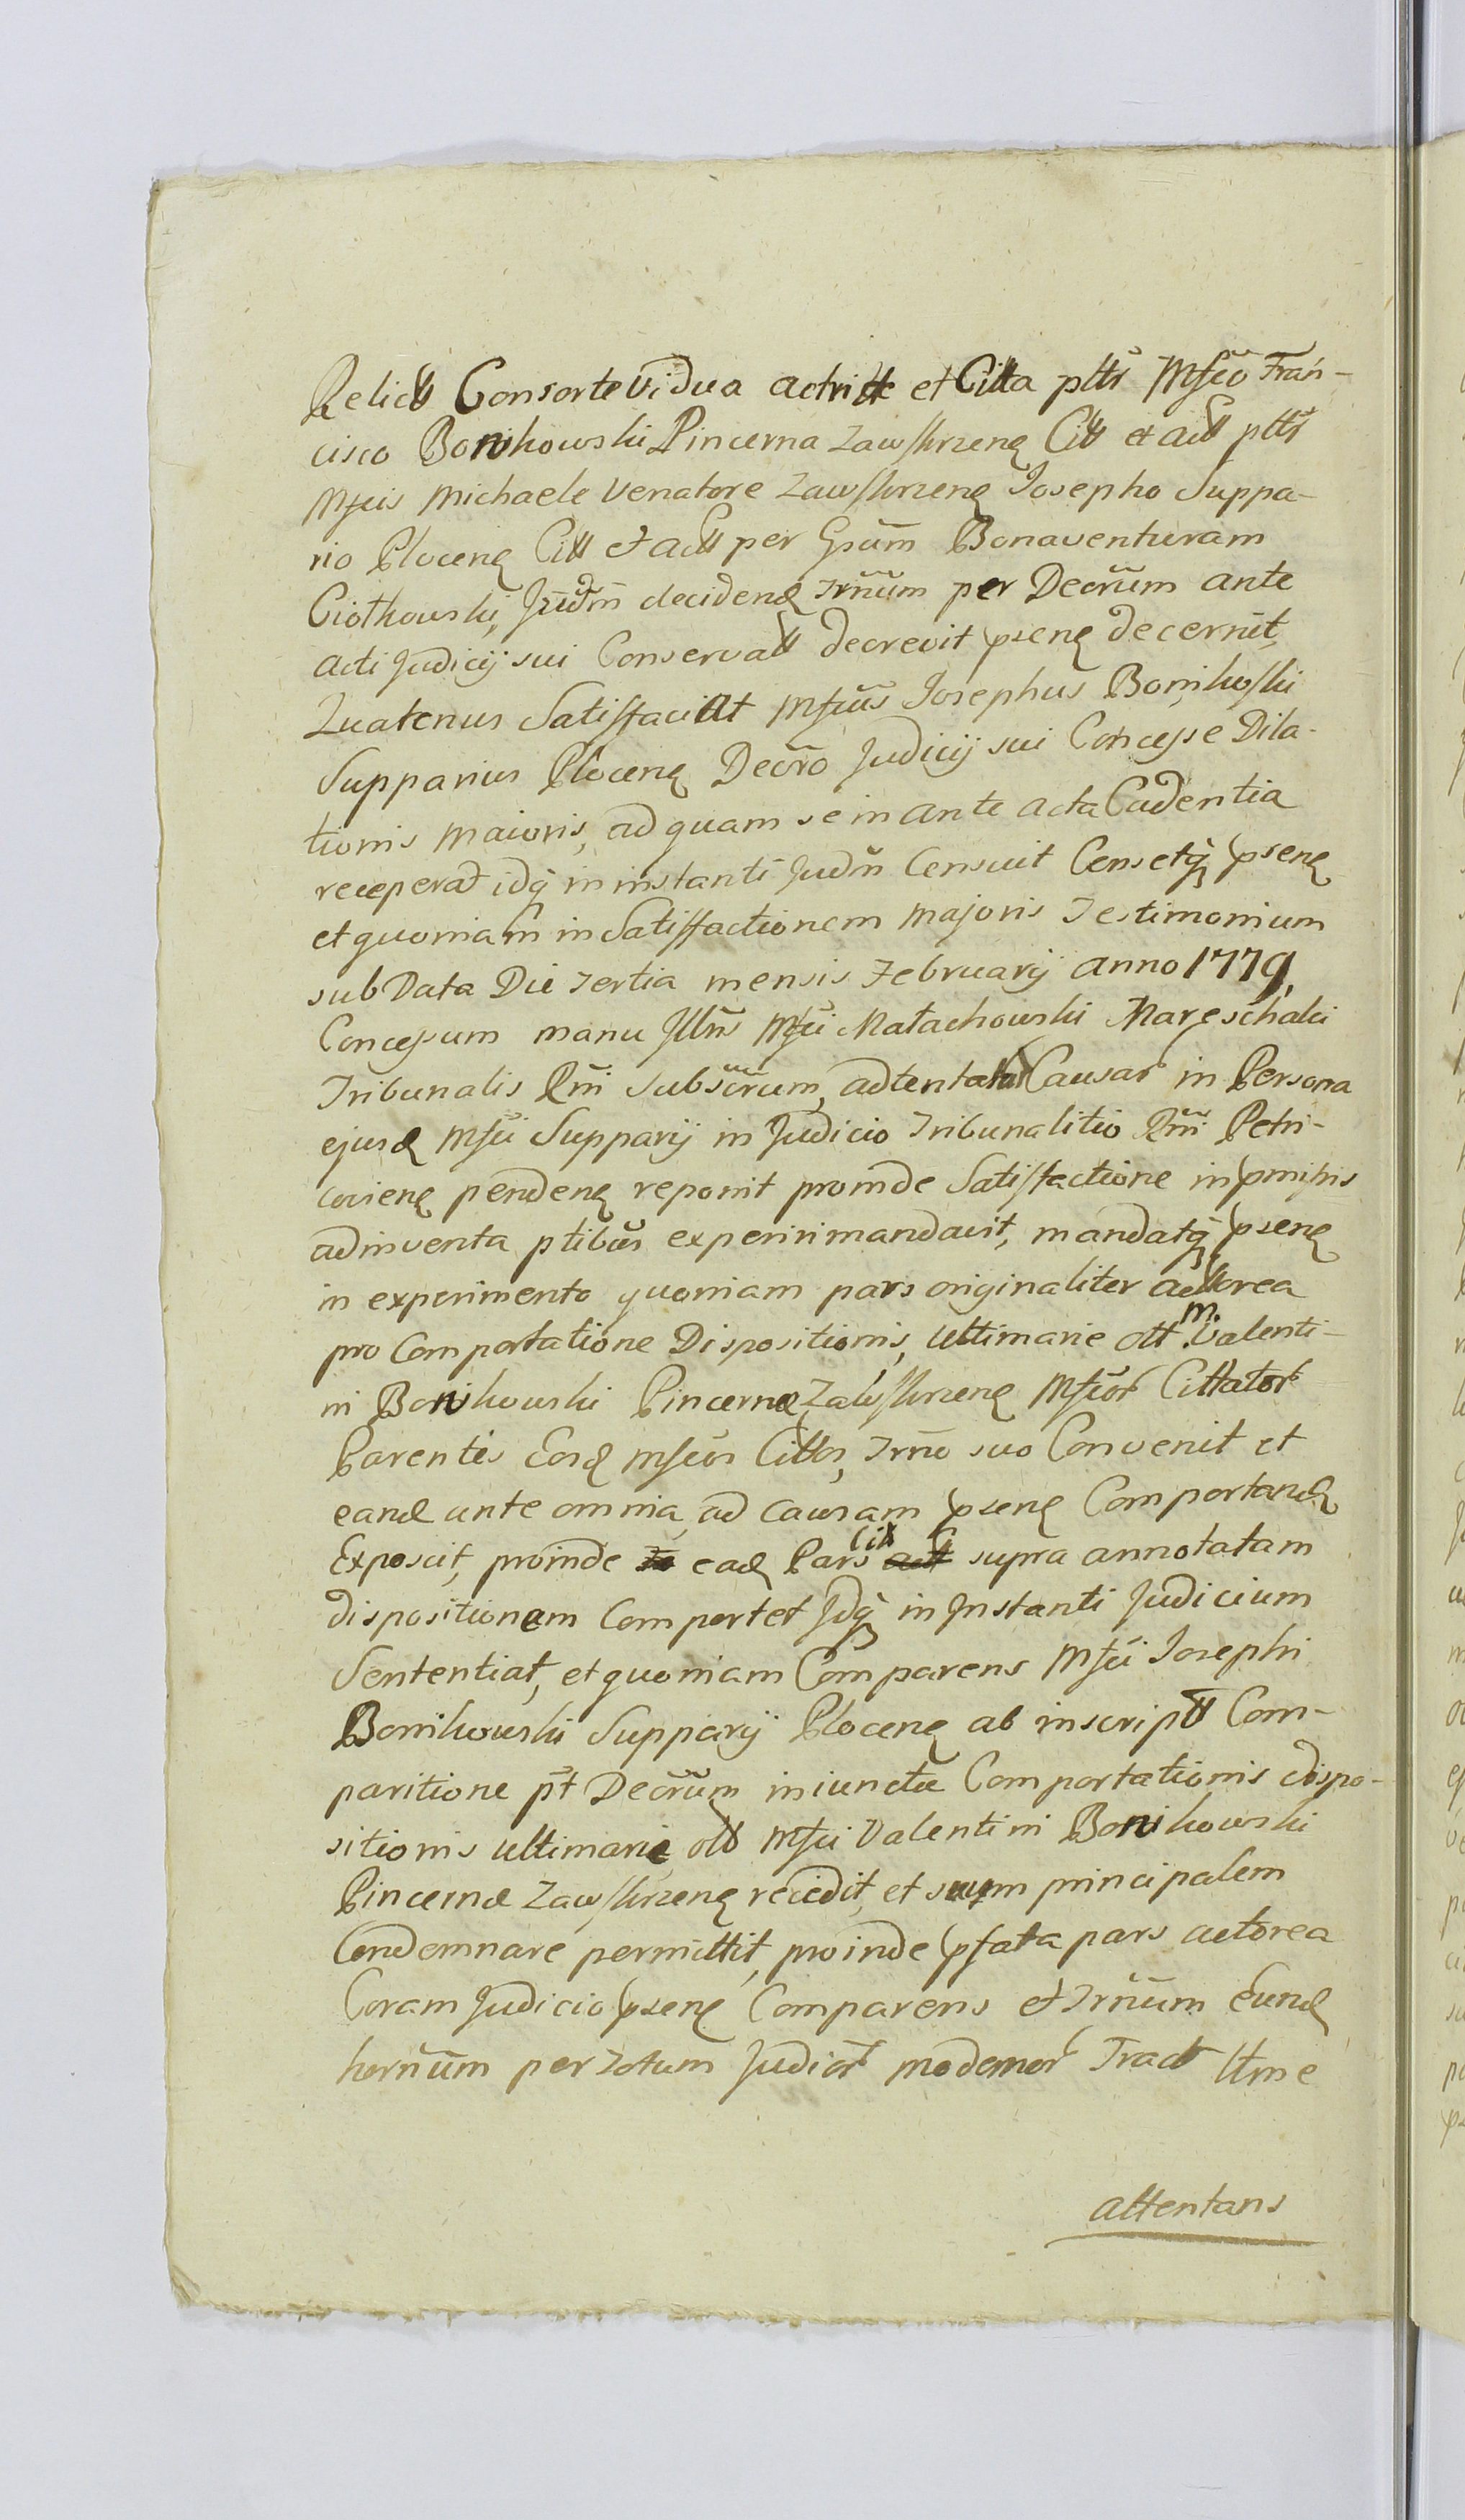 Relict Consorte Vidua actrice et Citta pltr Mfco Fran-
cisco Bonikowski Pincerna Zawskrzenę Citt et actt pltr
Mfcis Michaele Venatore Zawskrzenę Josepho Suppa-
rio Plocenę Citt et actt per Gsum Bonaventuram
Ciotkowski, Judm decidend Trnum per Decrum ante
acti Judicij sui Conservatt decrevit psenę decernit,
Quatenus Satisfaciat Mfcus Josephus Bonikoski
Supparius Plocenę Decro Judicij sui Concesse Dila-
tionis maioris, ad quam se in ante acta Cadentia
receperat idq in instanti Judm Censuit Censetq psenę
et quoniam in Satisfactionem majoris Testimonium
sub Data Die Tertia mensis Februarij anno 1779,
Concessum manu Illmi Mfci Małachowski Mareschalci
Tribunalis Rni subscrum, ad tentatar Causar in Persona
ejusd Mfci Supparij in Judicio Tribunalitio Rni Petri-
coviensę pendenę reponit proinde Satisfactione in pmissis
adinventa ptibus experiri mandavit, mandatq psenę
in experimento quoniam pars originaliter actorea
pro Comportatione Dispositionis, ultimarie ott m. Valenti-
ni Bonikowski Pincernæ Zawskrzenę Mfcor Cittator
Parentis Eord mfcos Cittos, Trno suo Convenit et
eand ante omnia, ad causam psenę Comportand
Exposcit, proinde ead Pars Citt supra annotatam
dispositionem Comportet Idq in Instanti Judicium
Sententiat, et quoniam Comparens Mfci Josephi
Bonikowski Supparij Plocenę ab inscriptt Com-
paritione pt Decrum iniunctæ Comportationis dispo-
sitionis ultimarie ott Mfci Valentini Bonikowski
Pincernæ Zawskrzenę recedit, et suum principalem
Condemnare permittit, proinde pfata pars actorea
Coram Judicio psenę Comparens et Trnum Eund
hornum per Totum Judior modernor Tract ltme
attentans